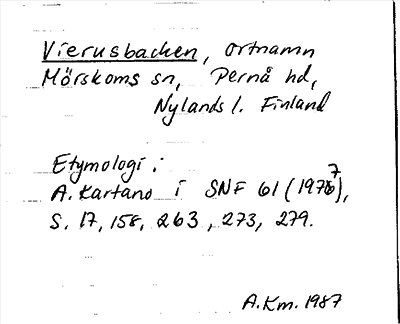 Vierusbacken, ortnamn
Mörskoms sn, Pernå hd,
Nylands l. Finland
Etymologi:
A. Kartano i SNF 61 (1977),
S. 17, 158, 263, 273, 279.
A.Km. 1987